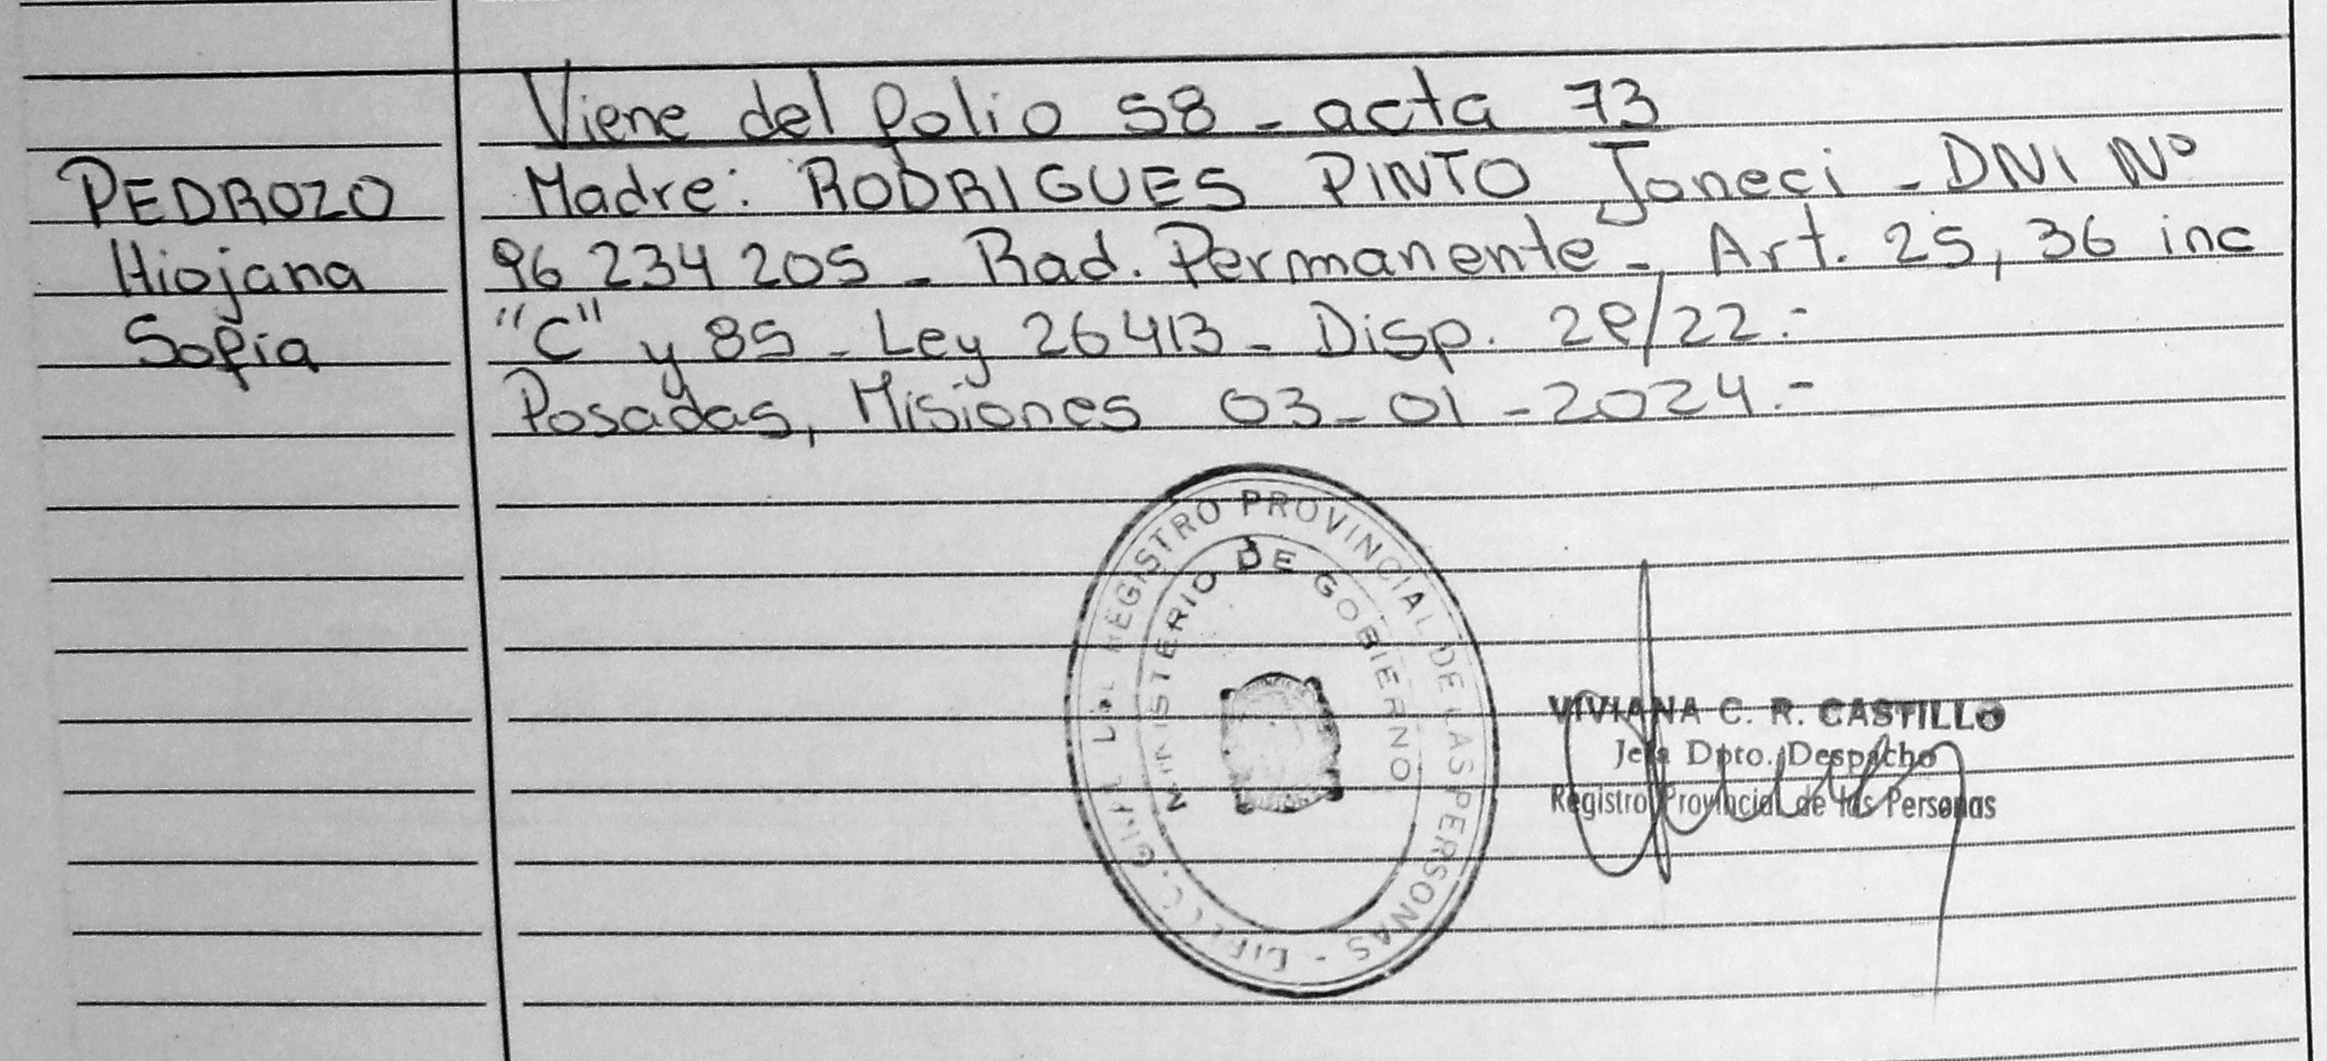 Viene del folio 58 - acta 73
PEDROZO
Hiojana
Sofia
Madre: RODRIGUES PINTO Joneci - DNI Nº
96 234 205 - Rad. Permanente - Art. 25, 36 inc
"C" y 85 - Ley 26413 - Disp. 28/22.-
Posadas, Misiones 03-01-2024.-
REGISTRO PROVINCIAL DE LAS PERSONAS
MINISTERIO DE GOBIERNO
VIVIANA C. R. CASTILLO
Jefa Dpto. Despacho
Registro Provincial de las Personas